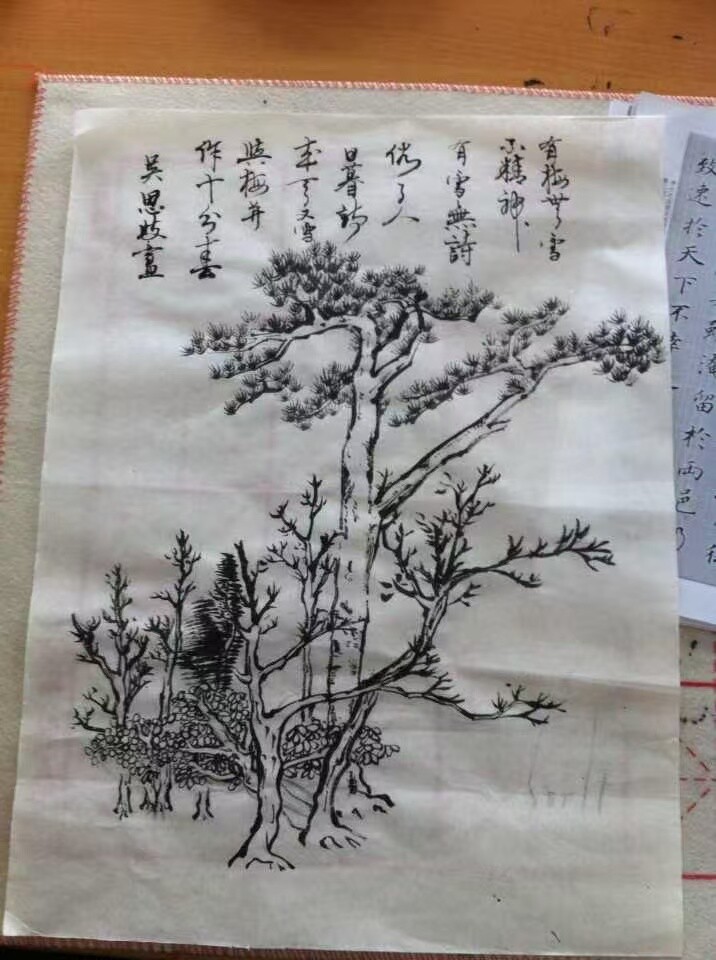 有梅無雪
不精神
有雪無詩
俗了人
日暮詩
成天又雪
與梅并
作十分春
吴思敏畫
致遠於天下不幸
留於兩邑乃